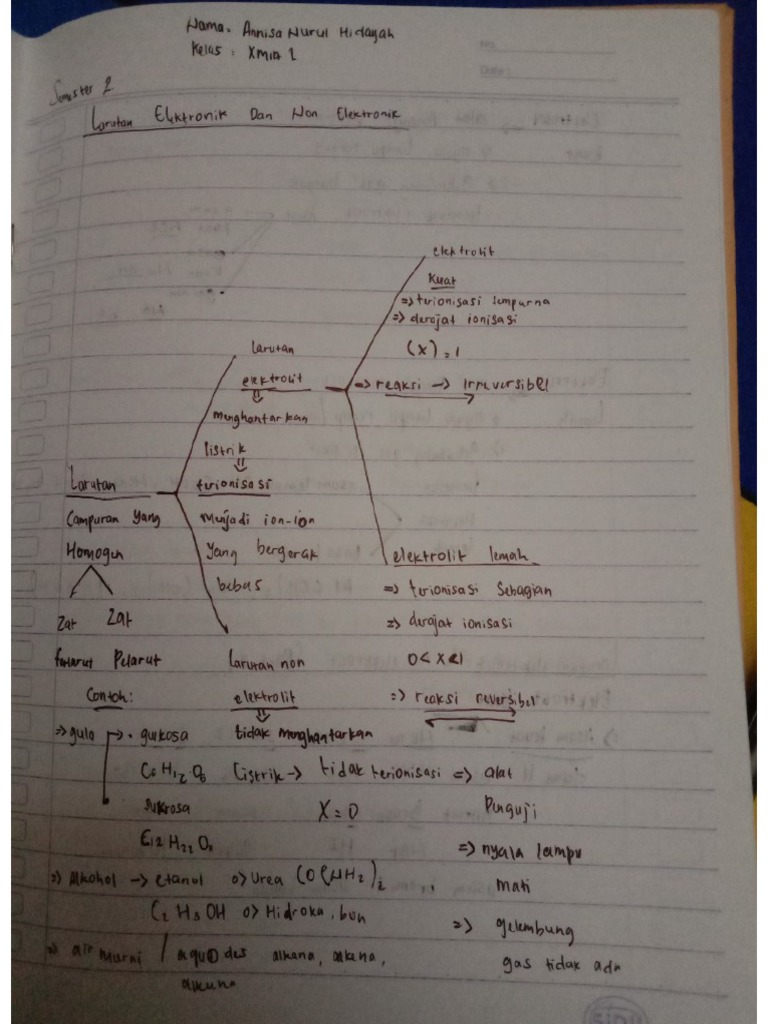 Nama: Annisa Nurul Hidayah
Kelas : XMIA 1
Semester 2
Larutan Elektronik Dan Non Elektronik
elektrolit
Kuat
=> terionisasi sempurna
=> derajat ionisasi
(x) = 1
=> reaksi → Irreversibel
Larutan
elektrolit
menghantarkan
listrik
terionisasi
menjadi ion-ion
yang bergerak
bebas
Larutan
Campuran yang
Homogen
Zat Zat
terlarut Pelarut
elektrolit lemah
=> terionisasi Sebagian
=> derajat ionisasi
0 < x < 1
=> reaksi reversibel
Larutan non
elektrolit
tidak menghantarkan
listrik → tidak terionisasi
X = 0
Contoh:
=> gula → . gukosa
C6 H12 O6
sukrosa
C12 H22 O11
=> Alkohol → etanol
C2 H5 OH
=> air murni / aquades
o> Urea CO(NH2)2
o> Hidroka, bon
alkana, alkena,
alkuna
=> alat
Penguji
=> nyala lampu
mati
=> gelembung
gas tidak ada
SIDU